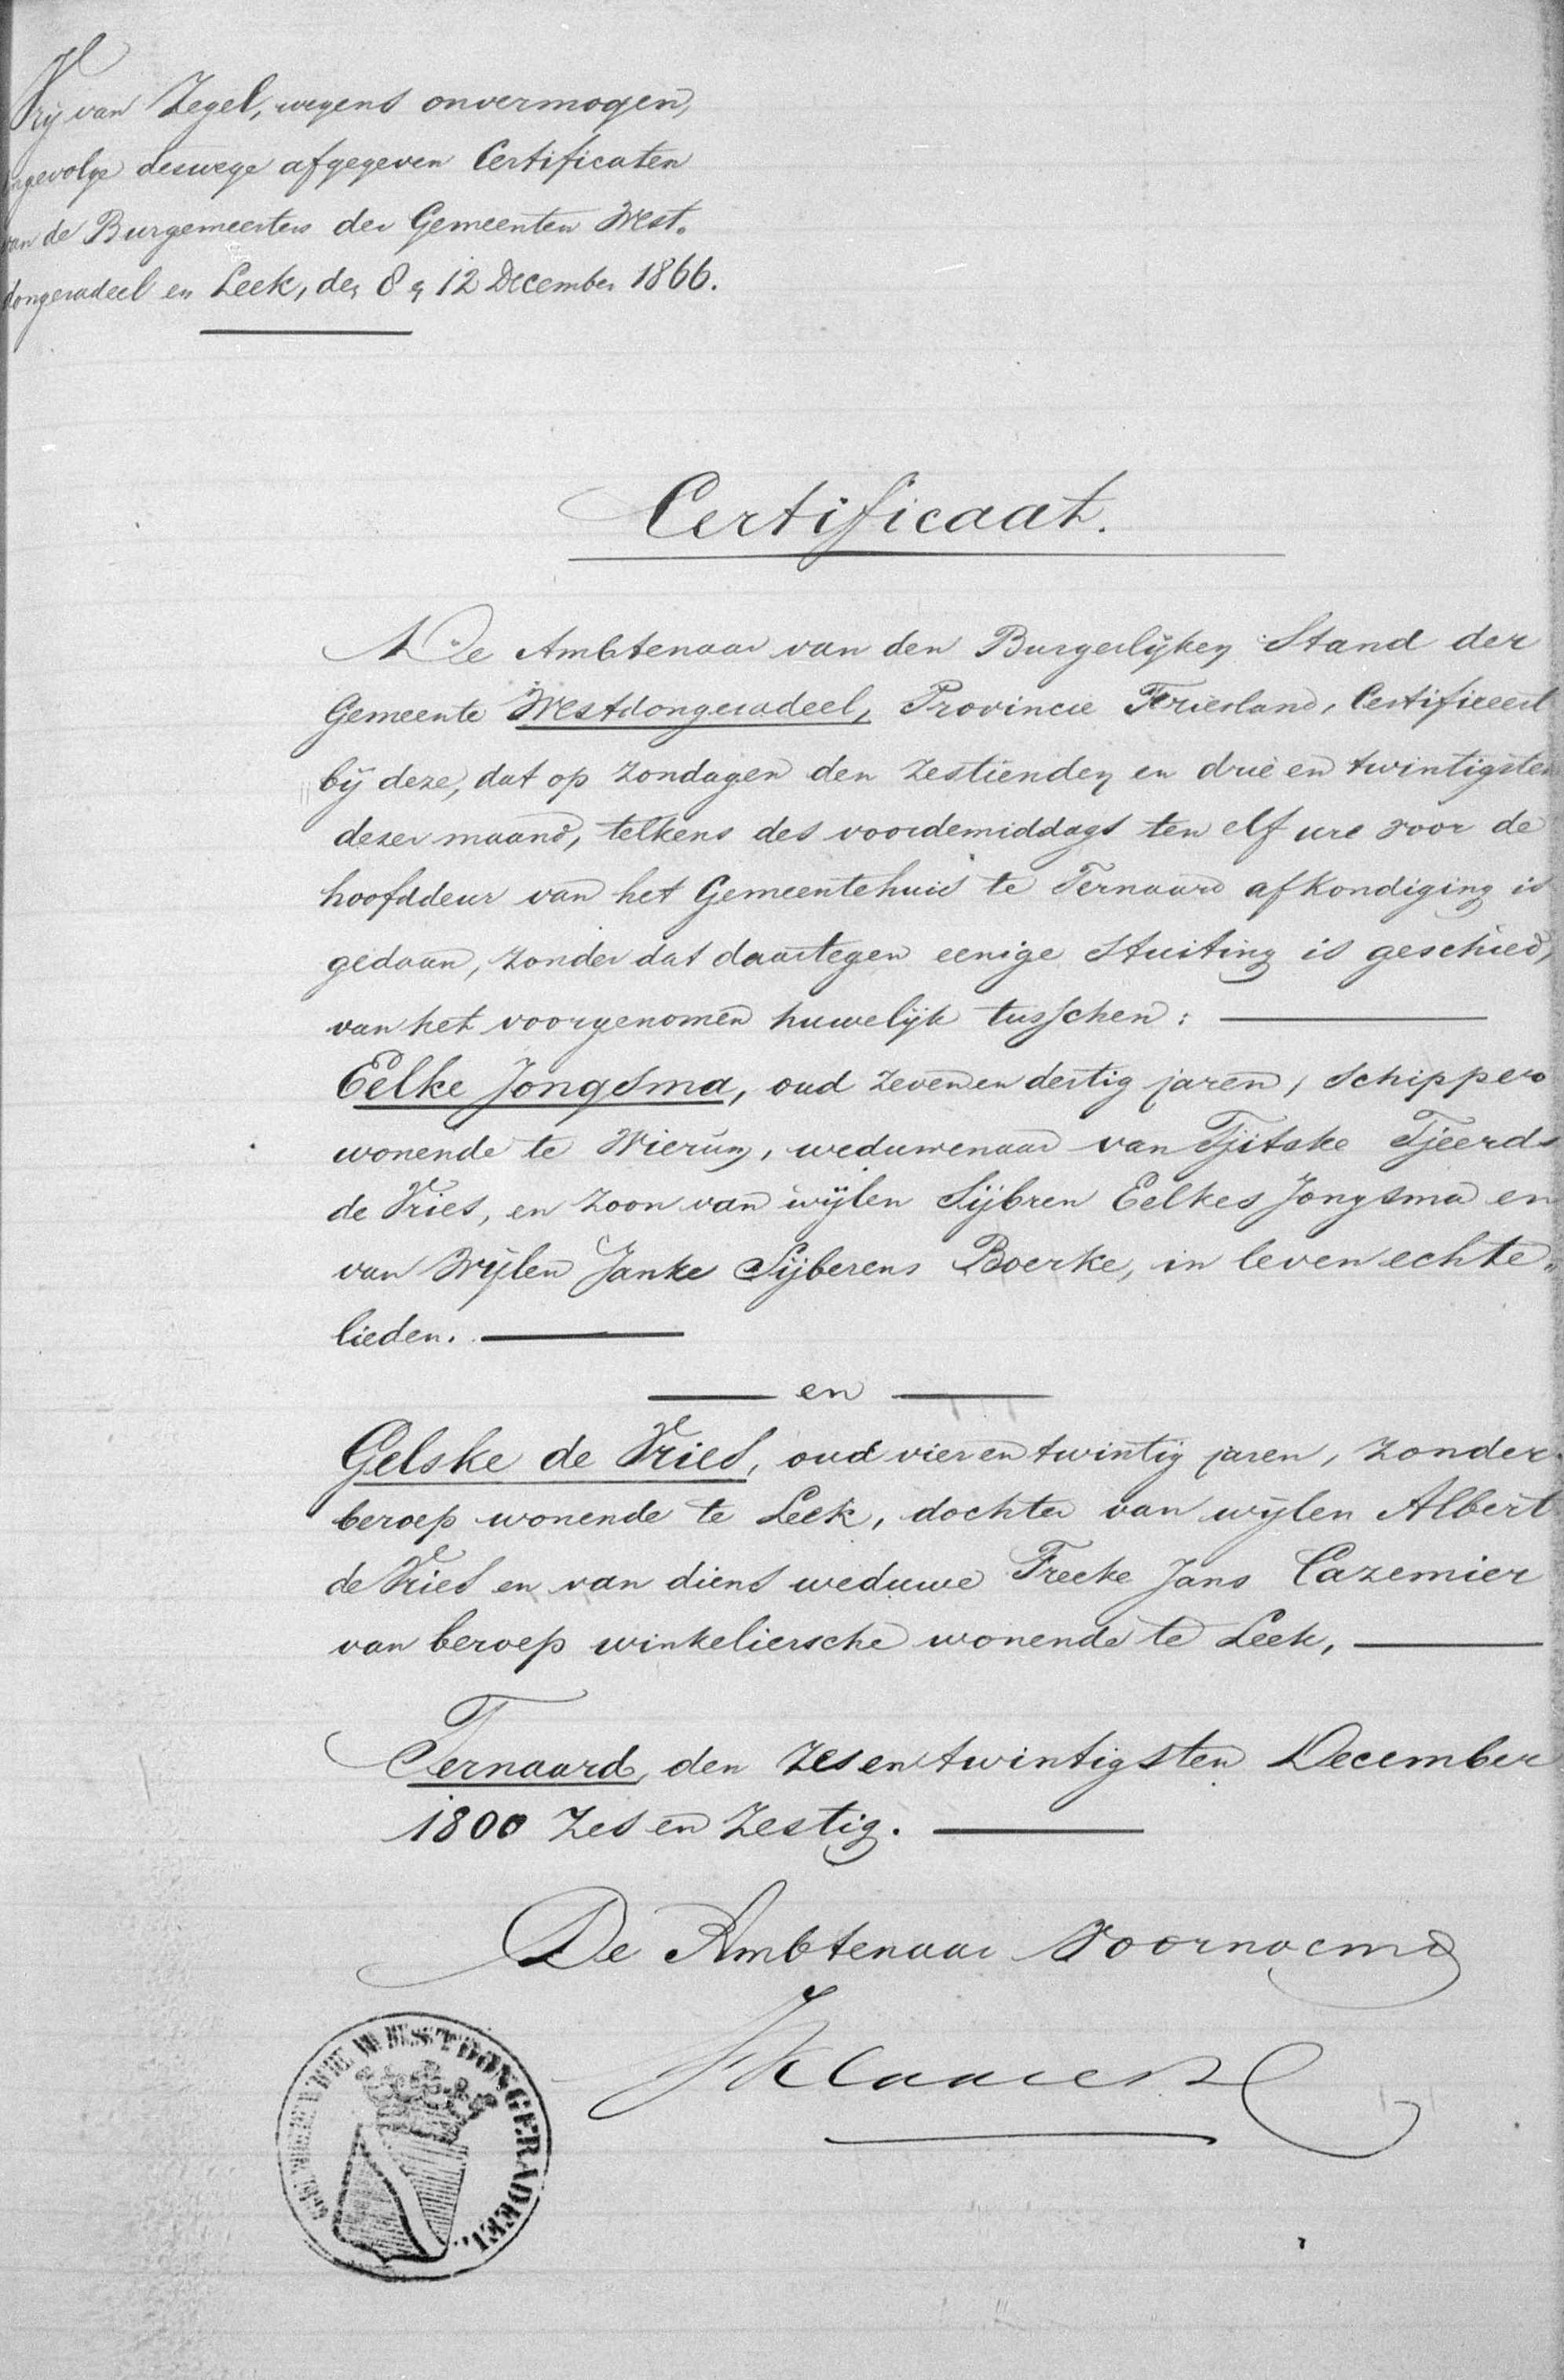 Vrij van Zegel, wegens onvermogen,
ingevolge deswege afgegeven Certificaten
van de Burgemeesters der Gemeenten West„
dongeradeel en Leek, den 8 & 12 December 1866.
Certificaat.
De Ambtenaar van den Burgerlijken Stand der
Gemeente Westdongeradeel, Provincie Friesland, Certificeert
bij deze, dat op Zondagen den zestienden en drie en twintigsten
dezer maand, telkens des voordemiddags ten elf ure voor de
hoofddeur van het Gemeentehuis te Ternaard afkondiging is
gedaan, zonder dat daartegen eenige Stuiting is geschied,
van het voorgenomen huwelijk tusschen:
Eelke Jongsma, oud zeven en dertig jaren, Schipper
wonende te Wierum, weduwenaar van Tjitske Tjeerds
de Vries, en zoon van wijlen Sijbren Eelkes Jongsma en
van Wijlen Janke Sijberens Boerke, in leven echte„
lieden.
en
Gelske de Vries, oud vier en twintig jaren, zonder
beroep wonende te Leek, dochter van wijlen Albert
de Vries en van diens weduwe Freeke Jans Cazemier
van beroep winkeliersche wonende te Leek,
Ternaard, den zes en twintigsten December
1800 Zes en Zestig.
De Ambtenaar Voornoemd
GEMEENTE WESTDONGERADEEL.